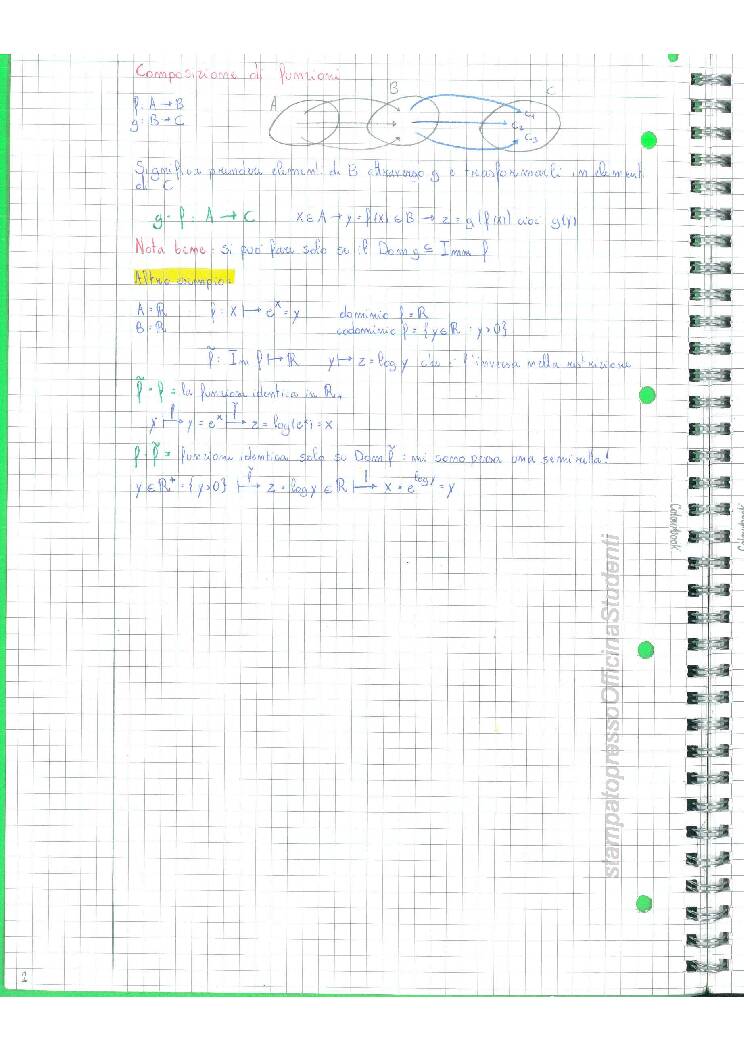 Composizione di funzioni
f: A → B
g: B → C
A B C
C₁
C₂
C₃
Significa prendere elementi di B attraverso g e trasformarli in elementi
di C
g∘f : A → C x∈A → y=f(x)∈B → z=g(f(x)) cioè g(y)
Nota bene: si può fare solo se il Dom g ⊆ Imm f
Altro esempio:
A=ℝ f: x ↦ eˣ=y dominio f=ℝ
B=ℝ codominio f={y∈ℝ : y>0}
f̃: Im f ↦ ℝ y ↦ z=log y l'inversa nella restrizione
f̃∘f = la funzione identica in ℝ₊
x ↦ y=eˣ ↦ z=log(eˣ)=x
f∘f̃ = funzione identica solo su Dom f̃: mi sono persa una semiretta!
y∈ℝ⁺={y>0} ↦ z=log y∈ℝ ↦ x=e^(log y)=y
Colourbook
stampatopressoOfficinaStudenti